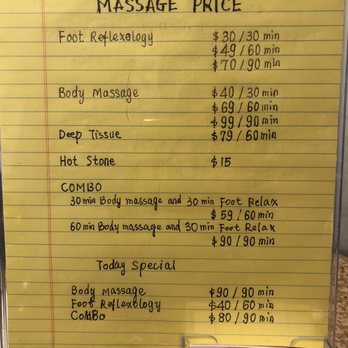 MASSAGE PRICE
Foot Reflexology $30/30 min
$49/60 min
$70/90 min
Body Massage $40/30 min
$69/60 min
$99/90 min
Deep Tissue $79/60 min
Hot Stone $15
COMBO
30min Body massage and 30min Foot Relax
$59/60min
60min Body massage and 30min Foot Relax
$90/90 min
Today Special
Body Massage $90/90 min
Foot Reflexology $40/60 min
Combo $80/90 min